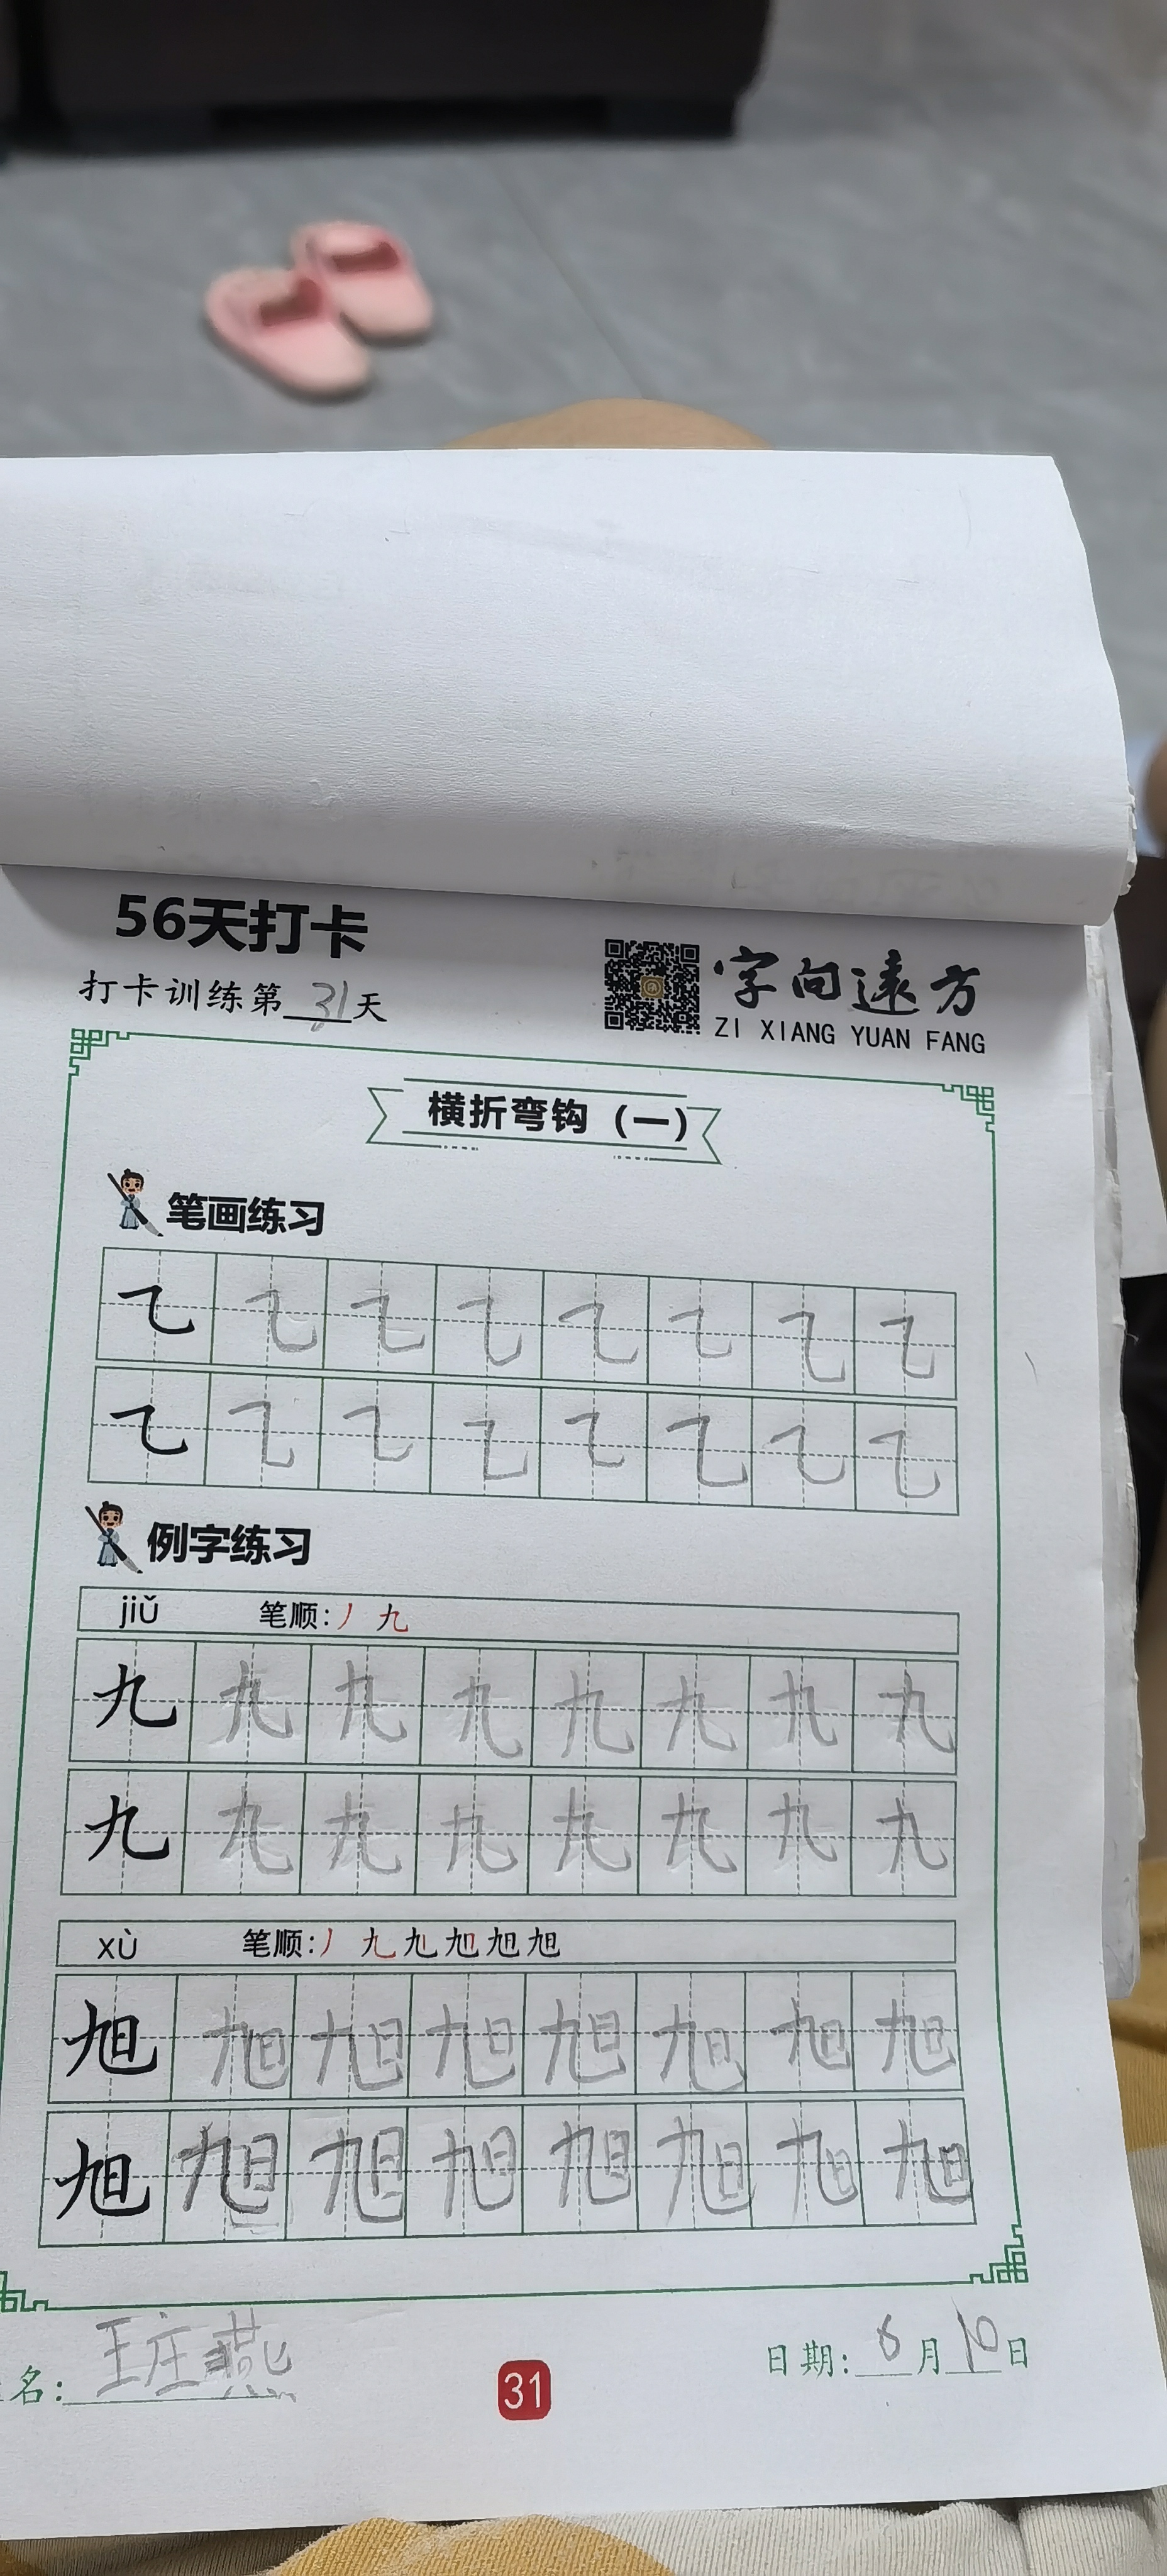 56天打卡
打卡训练第31天
字向遠方
ZI XIANG YUAN FANG
横折弯钩（一）
笔画练习
㇈ ㇈ ㇈ ㇈ ㇈ ㇈ ㇈ ㇈
㇈ ㇈ ㇈ ㇈ ㇈ ㇈ ㇈ ㇈
例字练习
jiǔ 笔顺：丿 九
九 九 九 九 九 九 九 九
九 九 九 九 九 九 九 九
xù 笔顺：丿 九 九 旭 旭 旭
旭 旭 旭 旭 旭 旭 旭 旭
旭 旭 旭 旭 旭 旭 旭 旭
名：王庄燕
31
日期：6月10日